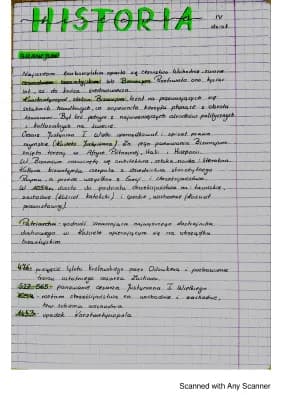 HISTORIA
IV
dział
BIZANCJUM
Najazdom barbarzyńskim oparło się cesarstwo wschodnie zwane
cesarstwem bizantyjskim lub Bizancjum. Przetrwało ono tysiąc
lat, aż do końca średniowiecza.
Konstantynopol, stolica Bizancjum, leżał na przecinających się
szlakach handlowych, co zapewniało korzyści płynące z obrotu
towarami. Był też jednym z najważniejszych ośrodków politycznych
i kulturalnych na świecie.
Cesarz Justynian I Wielki uporządkował i spisał prawa
rzymskie (Kodeks Justyniana). Za jego panowania Bizancjum
zajęło tereny w Afryce Północnej, Italii i Hiszpanii.
W Bizancjum rozwinęła się architektura, sztuka, nauka i literatura.
Kultura bizantyjska czerpała z dziedzictwa starożytnego
Rzymu, a przede wszystkim z Grecji i chrześcijaństwa.
W 1054r. doszło do podziału chrześcijaństwa na: łacińskie,
zachodnie (Kościół katolicki) i greckie, wschodnie (Kościół
prawosławny).
Patriarcha - godność oznaczająca najwyższego dostojnika
duchownego w Kościele opierającym się na obrządku
bizantyjskim
476- przejęcie tytułu królewskiego przez Odoakra i pozbawienie
tronu ostatniego cesarza Zachodu.
527-565- panowanie cesarza Justyniana I Wielkiego
1054- rozłam chrześcijaństwa na wschodnie i zachodnie,
tzw. schizma wschodnia
1453- upadek Konstantynopola
Scanned with Any Scanner